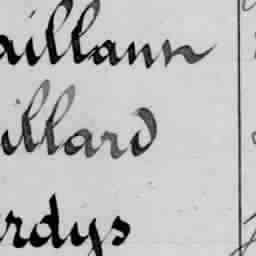 aillann
illard
rdys